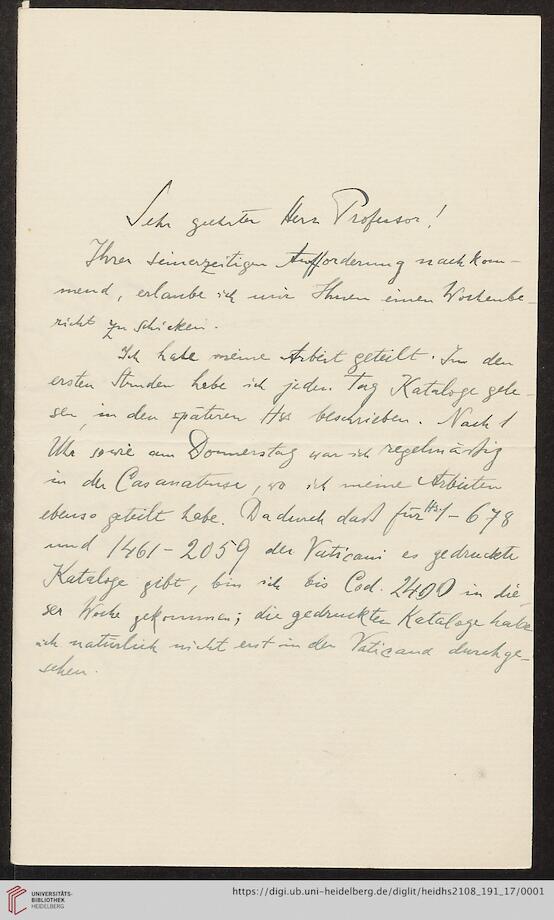 Sehr geehrter Herr Professor!
Ihrer seinerzeitigen Aufforderung nachkom-
mend, erlaube ich mir Ihnen einen Wochenbe-
richt zu schicken.
Ich habe meine Arbeit geteilt. In den
ersten Stunden habe ich jeden Tag Kataloge gele-
sen, in den späteren Hss beschrieben. Nach 1
Uhr sowie am Donnerstag war ich regelmäßig
in der Casanatense, wo ich meine Arbeiten
ebenso geteilt habe. Dadurch daß für Hs. 1-678
und 1461-2059 der Vaticani es gedruckte
Kataloge gibt, bin ich bis Cod. 2400 in die
ser Woche gekommen; die gedruckten Kataloge habe
ich natürlich nicht erst in der Vaticana durchge-
sehen.
UNIVERSITÄTS-
BIBLIOTHEK
HEIDELBERG
https://digi.ub.uni-heidelberg.de/diglit/heidhs2108_191_17/0001